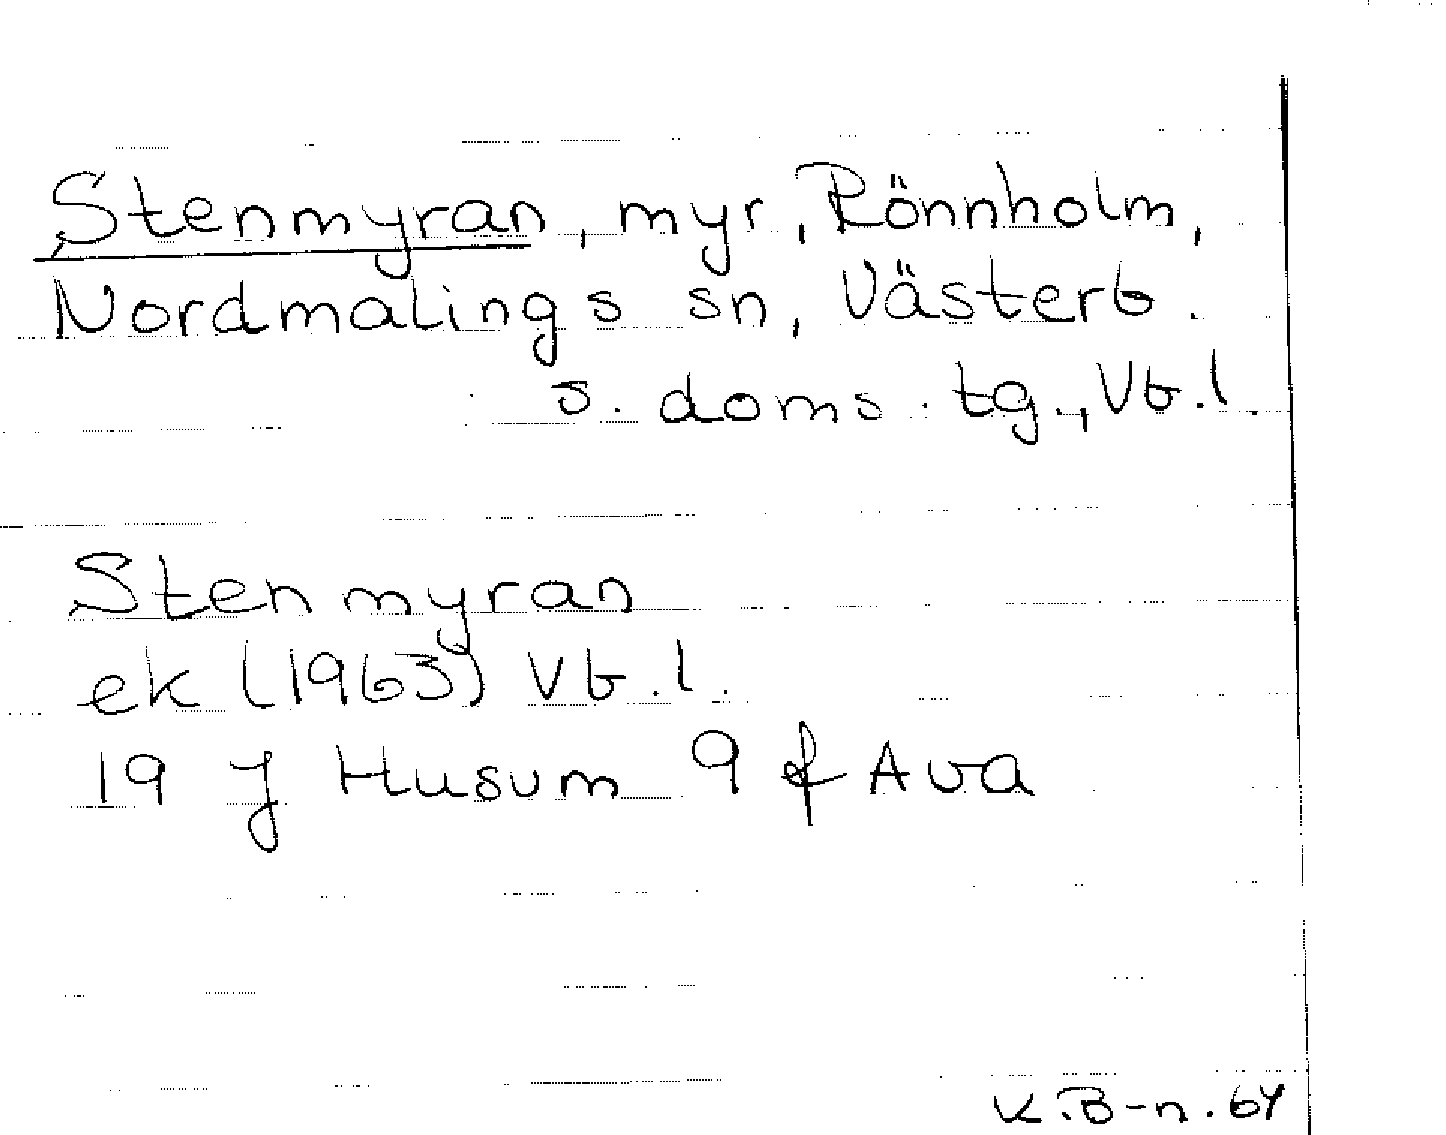 Stenmyran, myr, Rönnholm,
Nordmalings sn, Västerb.
s. doms. tg., Vb.l.
Stenmyran
ek (1963) Vb.l.
19 J Husum 9 f Ava
K.B-n. 64